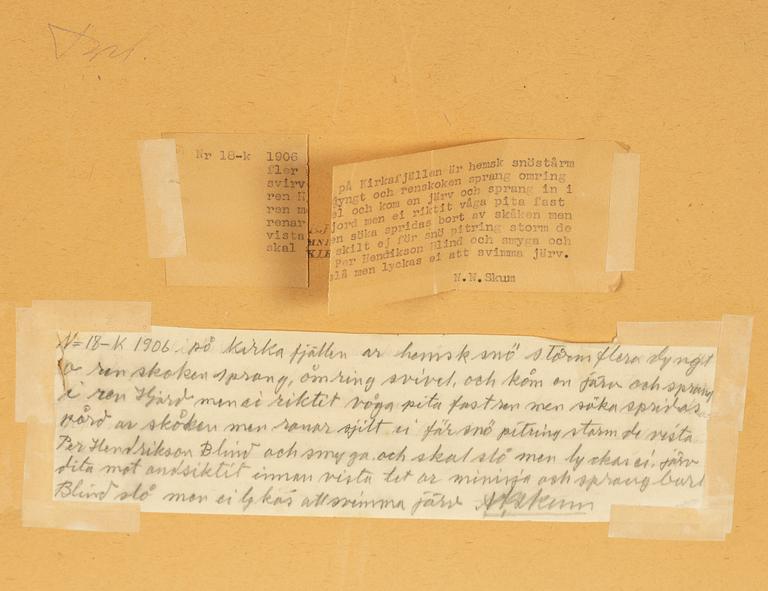 Nr 18-k 1906 på Kirksfjällen är hemsk snöstårm
fler dyngt och renskoken sprang omring
svirv el och kom en järv och sprang in i
ren H jord men ei riktit våga pita fast
ren m en söka spridas bort av skåken men
renar skilt ej för snö pitring storm de
vista Per Hendikson Blind och smyga och
skal slå men lyckas ei att svimma järv.
N.N.Skum
N=18-K 1906 på Kirka fjällen ar hemsk snö störm flera dyngt
o ren skoken sprang, omring svivel, och kom en järv och sprang
i ren Hjård men ei riktit våga pita fast ren men söka spridas
vård av skåken men ranar sjilt ei får snö pitring storm de vista
Per Hendrikson Blind och smyga och skal slå men lyckas ei. järv
dita mot andsiktit innan vista tet ar mininja och sprang bort
Blind slå men ei lykas att svimma järv NNSkum